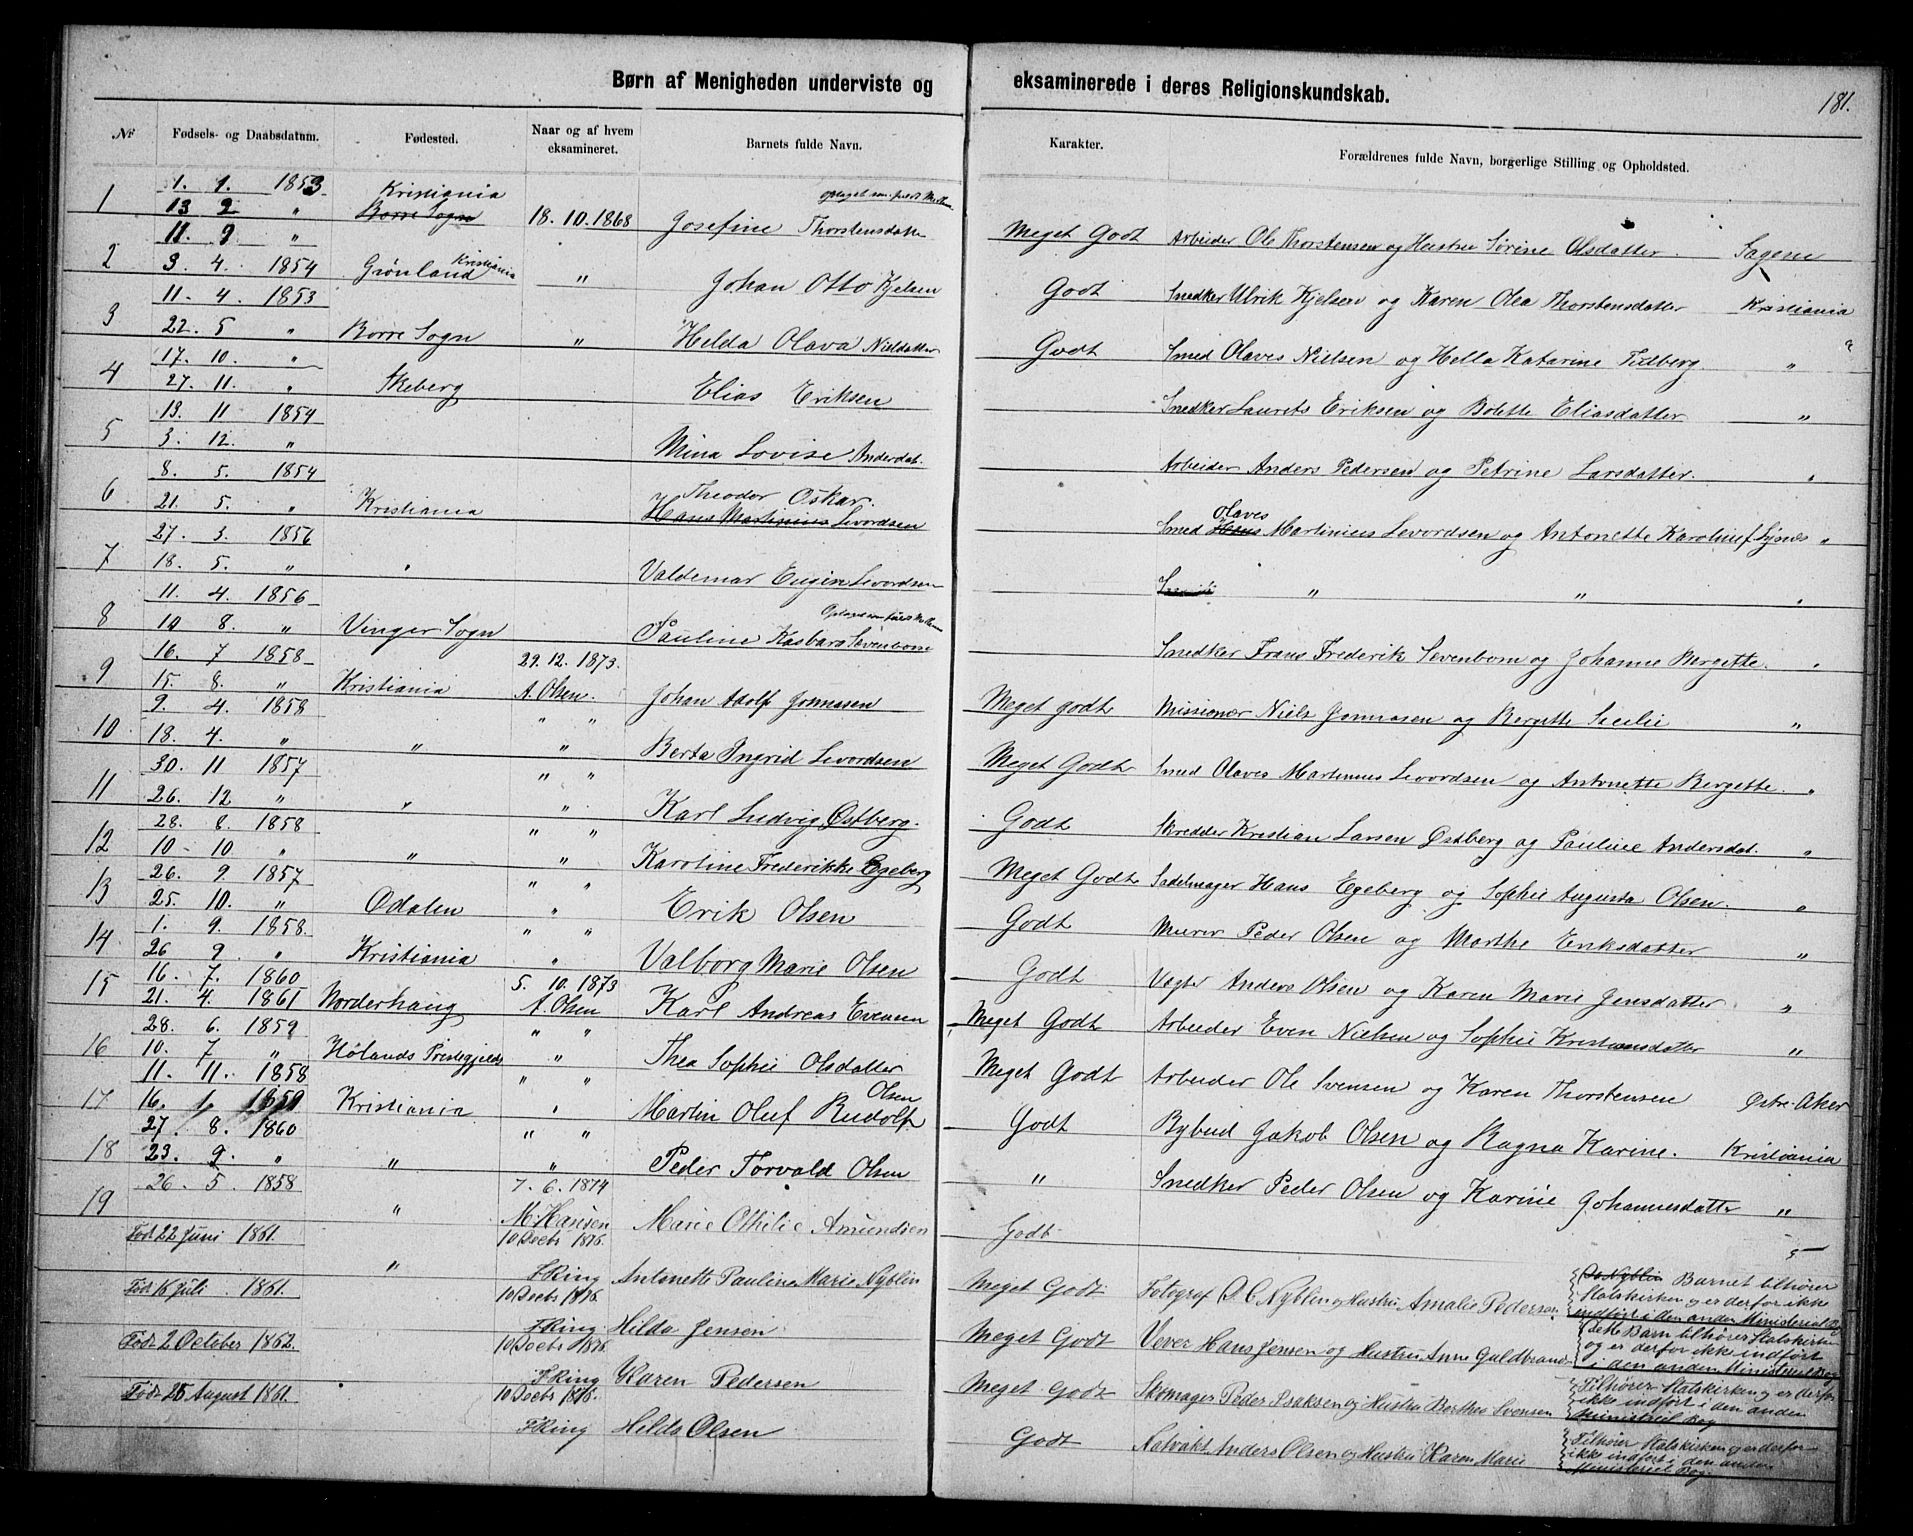 Børn af Menigheden underviste og eksaminerede i deres Religionskundskab.
181.
№ Fødsels- og Daabsdatum. Fødested. Naar og af hvem eksamineret. Barnets fulde Navn. Karakter. Forældrenes fulde Navn, borgerlige Stilling og Opholdsted.
1 1. 1. 1853 13 2 " Kristiania Borre Sogn 18. 10. 1868 Josefine Thorstensdatter Meget Godt Arbeider Ole Thorstensen og Hustru Sørine Olsdatter. Sagene
2 11. 9 " 3. 4. 1854 Grønland Kristiania " Johan Otto Kjelsen Godt Snedker Ulrik Kjelsen og Karen Olea Thorstensdatter Kristiania
3 11. 4. 1853 22. 5 " Borre Sogn " Helda Olava Nielsdatter Godt Smed Olaves Nielsen og Hella Katarine Fidberg "
4 17. 10. " 27. 11. " Skeberg Elias Eriksen Snedker Laurets Eriksen og Bolette Eliasdatter "
5 13. 11 1854 3. 12. " Mina Lovise Andersdat. Arbeider Anders Pedersen og Petrine Larsdatter. "
6 8. 5. 1854 21. 5. " Kristiania Theodor Oskar. Hans Martinius Levordsen Smed Olaves Hans Martinius Levordsen og Antonette Karoline f. "
7 27. 3. 1856 18. 5. " " Valdemar Eugin Levordsen " " "
8 11. 4. 1856 10 8. " Vinger Sogn Pauline Kasbara Sevenbom Snedker Frans Frederik Sevenbom og Johanne Bergette. "
9 16. 7 1858 15. 8. " Kristiania 29. 12. 1873. A. Olsen. Johan Adolf Jonnasen Meget godt Missionær Niels Jonnasen og Bergette Secilie "
10 9. 4. 1858 18. 4. " " " " " Berta Ingrid Levordsen Meget Godt Smed Olaves Martinius Levordsen og Antonette Bergette. "
11 30. 11 1857 26. 12 " " " " " Karl Ludvig Østberg. Godt Skredder Kristian Larsen Østberg og Pauline Andersdat. "
12 28. 8. 1858 10 - 10. " " " " " Karoline Frederikke Egeberg Meget Godt Sadelmager Hans Egeberg og Sophie Augusta Olsen. "
13 26. 9 1857 25. 10. " Odalen " " " Erik Olsen Godt Murer Peder Olsen og Marthe Eriksdatter "
14 1. 9. 1858. 26 9. " Kristiania " " " Valborg Marie Olsen Godt Vegter Anders Olsen og Karen Marie Jensdatter "
15 16. 7. 1860 21. 4. 1861 Norderhaug 5. 10. 1873 A. Olsen Karl Andreas Evensen Meget Godt Arbeider Even Nielsen og Sophie Kristiansdatter "
16 28. 6. 1859 10. 7 " Hølands Prestegjeld " " " Thea Sophie Olsdatter Meget Godt Arbeider Ole Svensen og Karen Thorstensen Østre-Aker
17 11. 11. 1858 16. 1. 1859 Kristiania " " " Martin Oluf Rudolf Olsen Godt Bybud Jakob Olsen og Ragna Karine. Kristiania
18 27. 8. 1860 23. 9. " " " " " Peder Torvald Olsen " Snedker Peder Olsen og Karine Johannesdatter "
19 26. 5. 1858 " 7. 6. 1874 M. Hansen Marie Othilie Amundsen Godt
Født 22 Juni 1861. " 10 Decbr 1876. F Ring Antonette Pauline Marie Nyblin Meget Godt Fotograf D. C. Nyblin og Hustru Amalie Pedersen Barnet tilhører Statskirken og er derfor ikke indført i den anden Ministerial B
Født 16 Juli 1861. 10 Decbr 1876. F Ring Hilda Jensen Meget Godt Væver Hans Jensen og Hustru Anne Guldbrands dette Barn tilhører Statskirken og er derfor ikke indført i den anden Ministeriel Bog
Født 2 October 1862. 10 Decbr 1876. F Ring Karen Pedersen Meget Godt Skomager Peder Isaksen og Hustru Berthea Svensen Tilhører Statskirken og er derfor ikke indført i den anden Ministeriel Bog
Født 25 August 1861. 10 Decbr 1876. F Ring Hilda Olsen Godt Natvakt Anders Olsen og Hustru Karen Marie Tilhører Statskirken og er derfor ikke indført i den anden Ministeriel Bog.